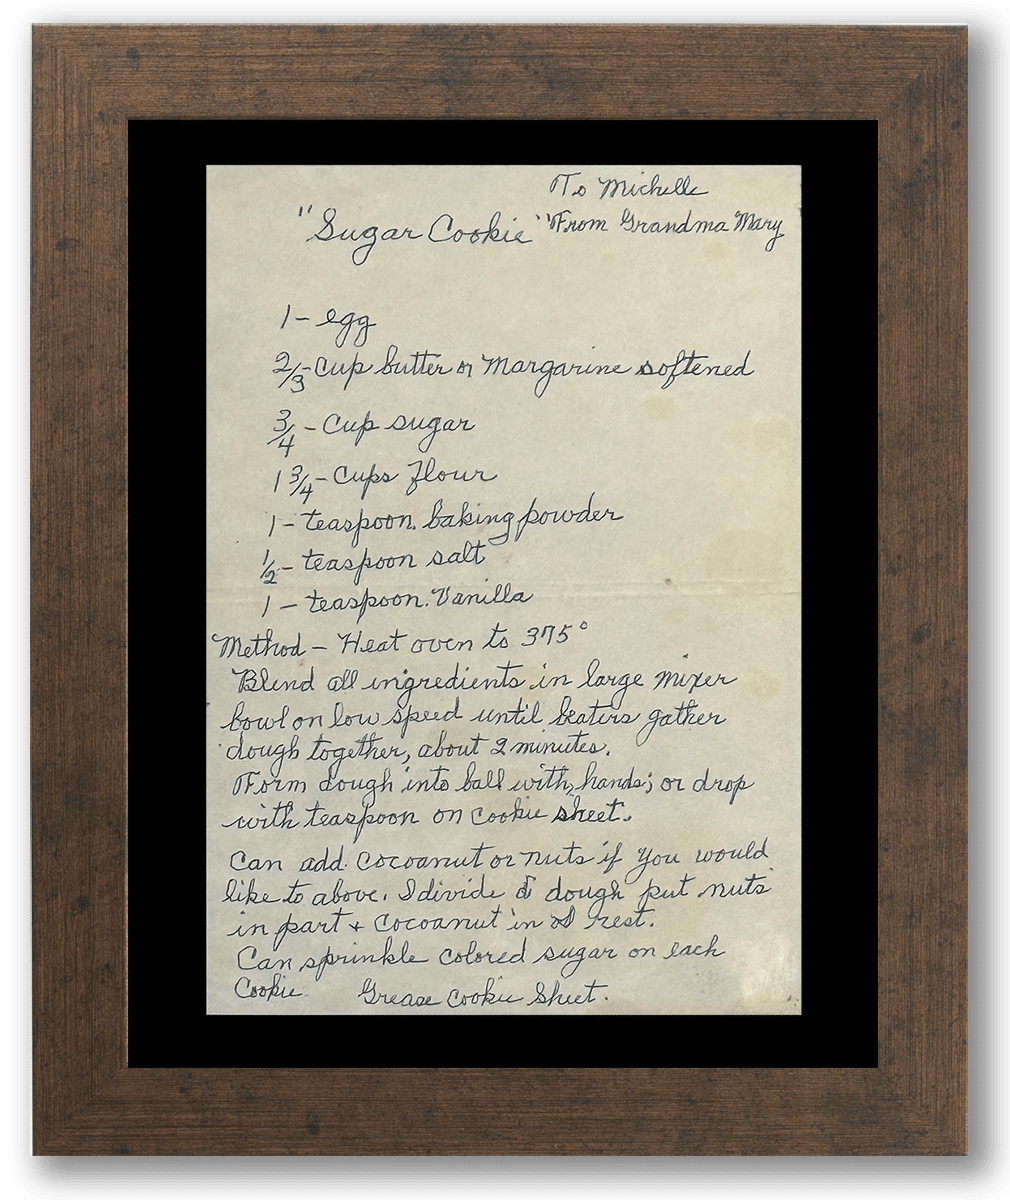 To Michelle
"Sugar Cookie" From Grandma Mary
1 - egg
2/3 - cup butter or Margarine softened
3/4 - cup sugar
1 3/4 - cups flour
1 - teaspoon baking powder
1/2 - teaspoon salt
1 - teaspoon Vanilla
Method - Heat oven to 375°
Blend all ingredients in large mixer
bowl on low speed until beaters gather
dough together, about 2 minutes.
Form dough into ball with hands; or drop
with teaspoon on cookie sheet.
Can add cocoanut or nuts if you would
like to above. I divide dough put nuts
in part + cocoanut in rest.
Can sprinkle colored sugar on each
Cookie. Grease cookie sheet.